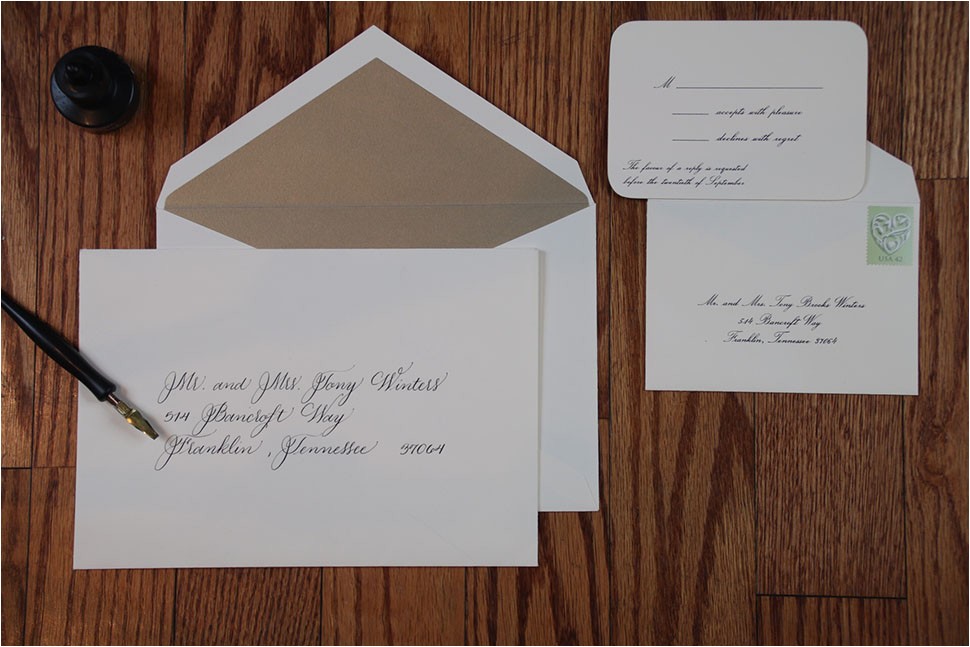 Mr. and Mrs. Tony Winters
514 Bancroft Way
Franklin, Tennessee 37064
M
accepts with pleasure
declines with regret
The favour of a reply is requested
before the twentieth of September
USA 42
Mr. and Mrs. Tony Brooks Winters
514 Bancroft Way
Franklin, Tennessee 37064